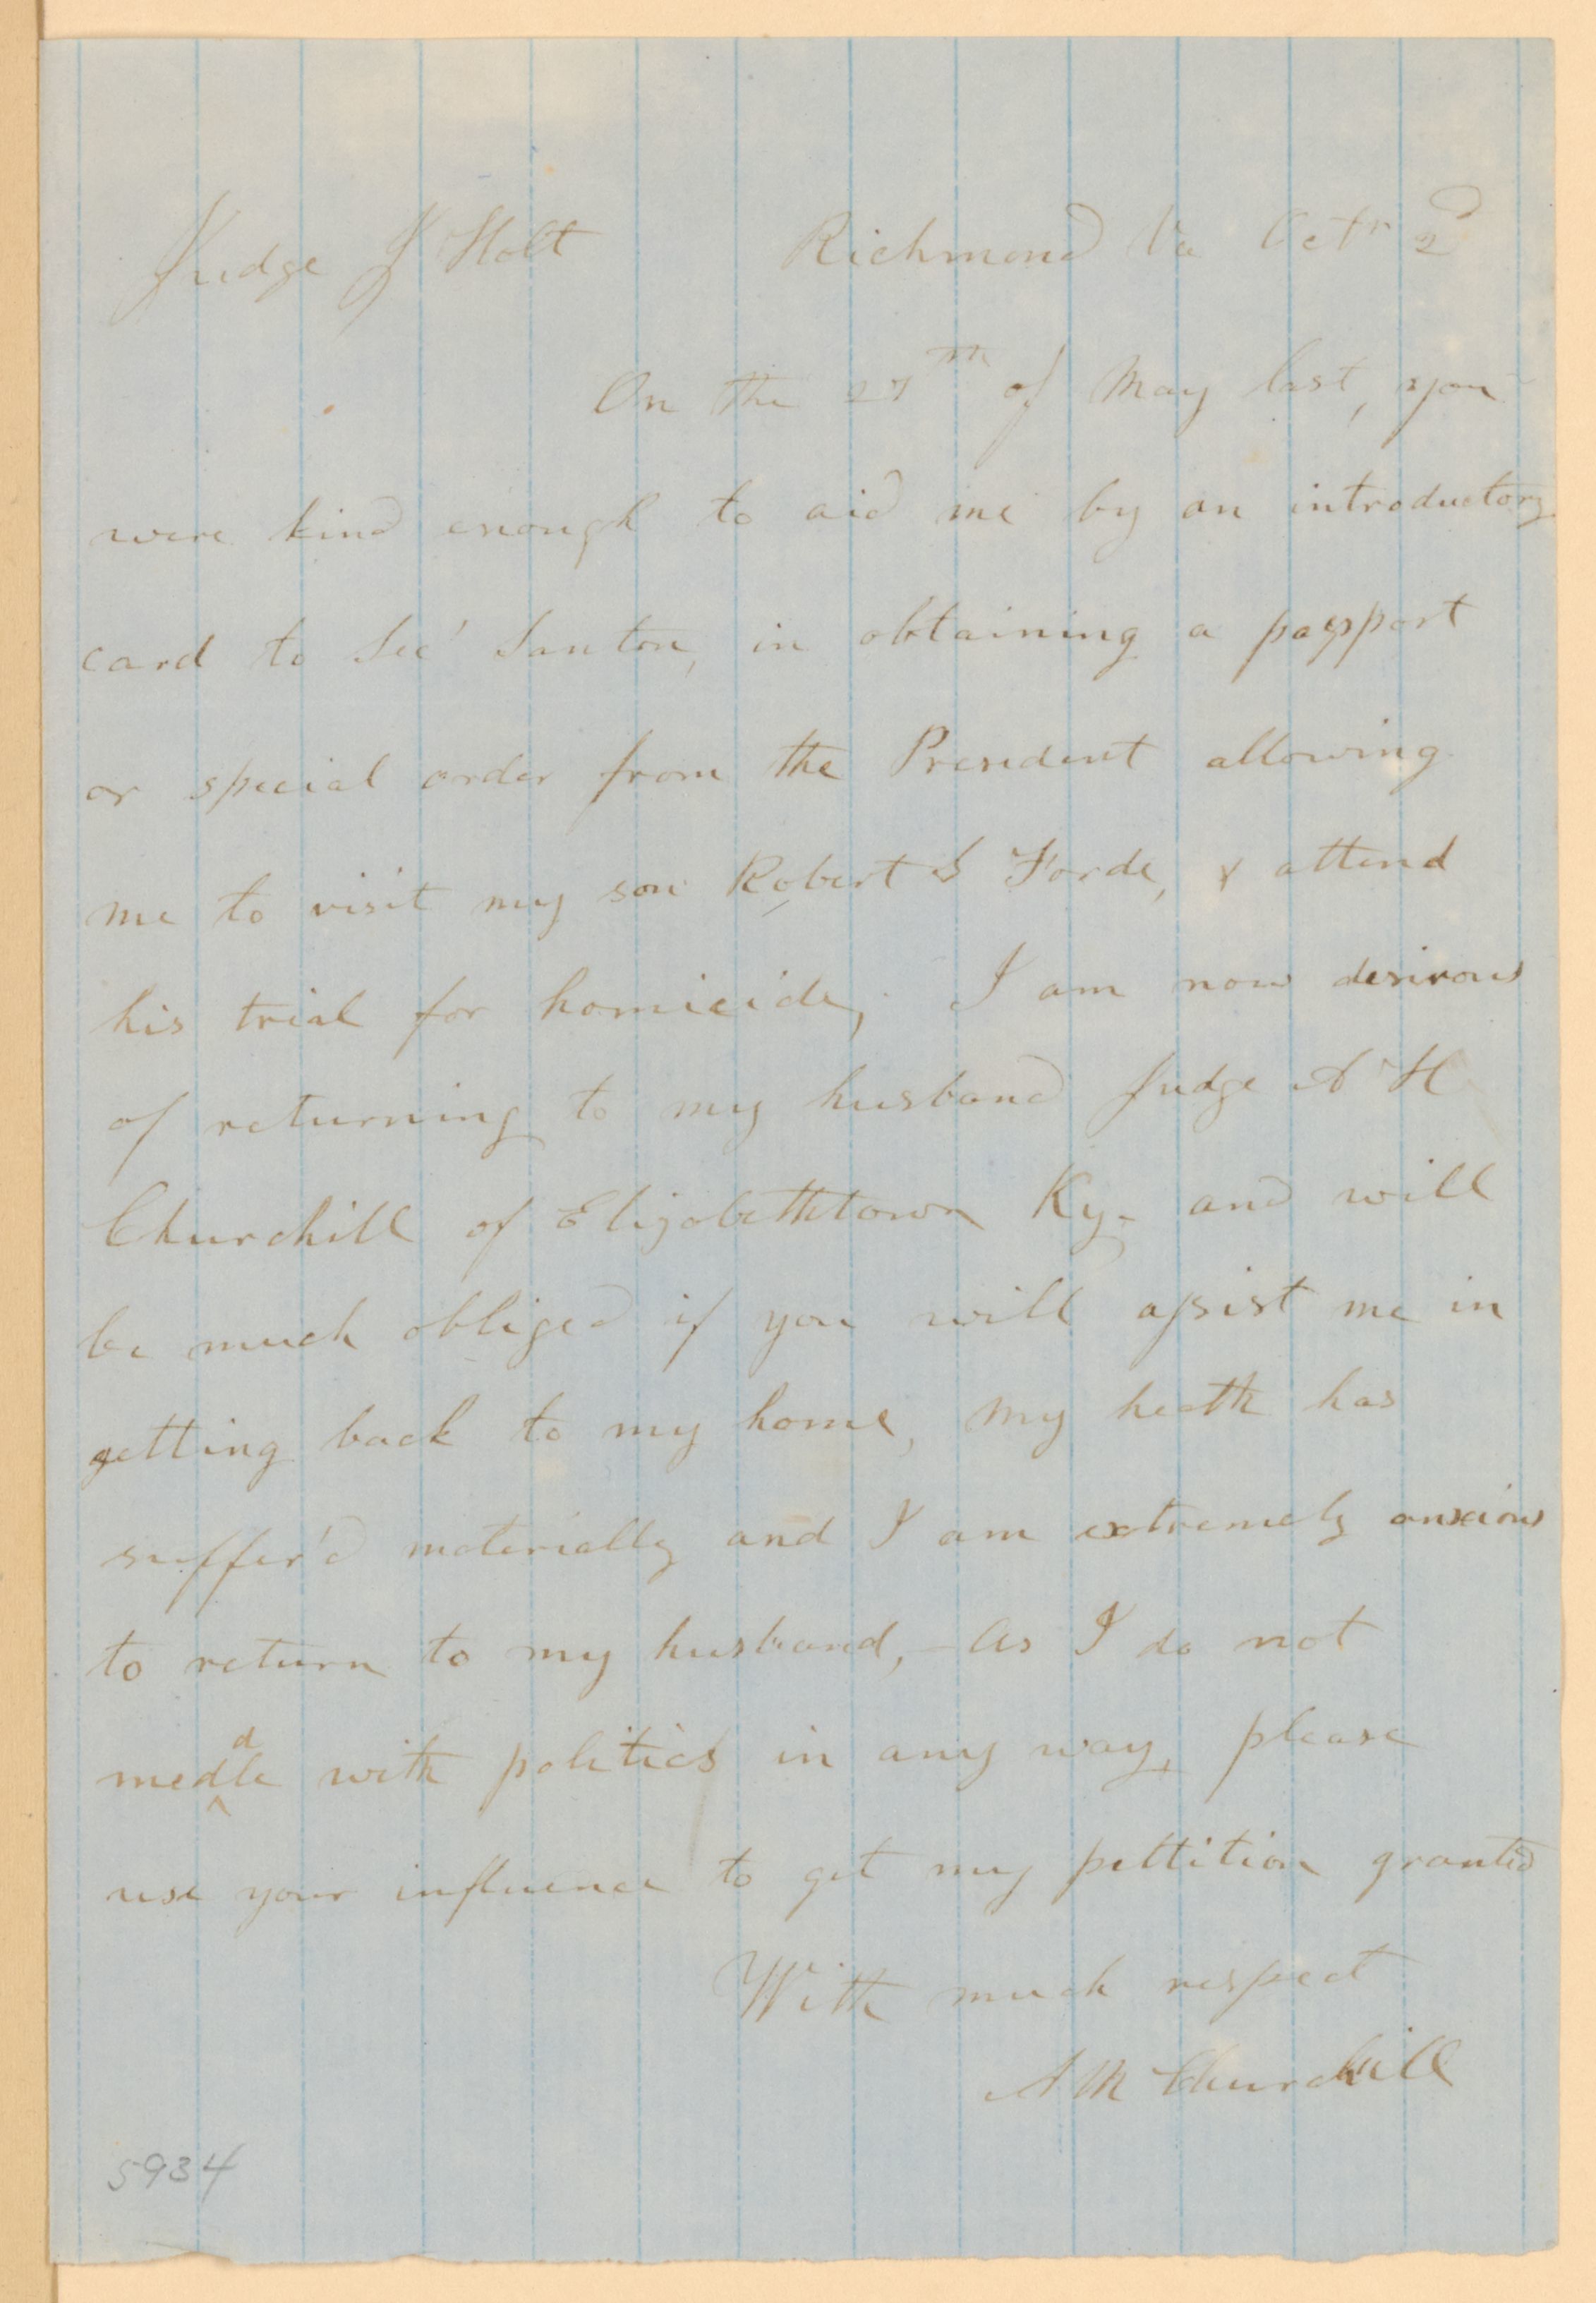 Judge J Holt Richmond Va Octr 2d
On the 27th of May last, you
were kind enough to aid me by an introductory
card to Sec' Santon, in obtaining a passport
or special order from the President allowing
me to visit my son Robert S Forde, & attend
his trial for homicide, I am now desirous
of returning to my husband Judge A H
Churchill of Elizabethtown Ky. and will
be much obliged if you will assist me in
getting back to my home, my heath has
suffer'd materially and I am extremely anxious
to return to my husband, – as I do not
meddle with politics in any way, please
use your influence to get my pettition granted
With much respect
A M Churchill
5934